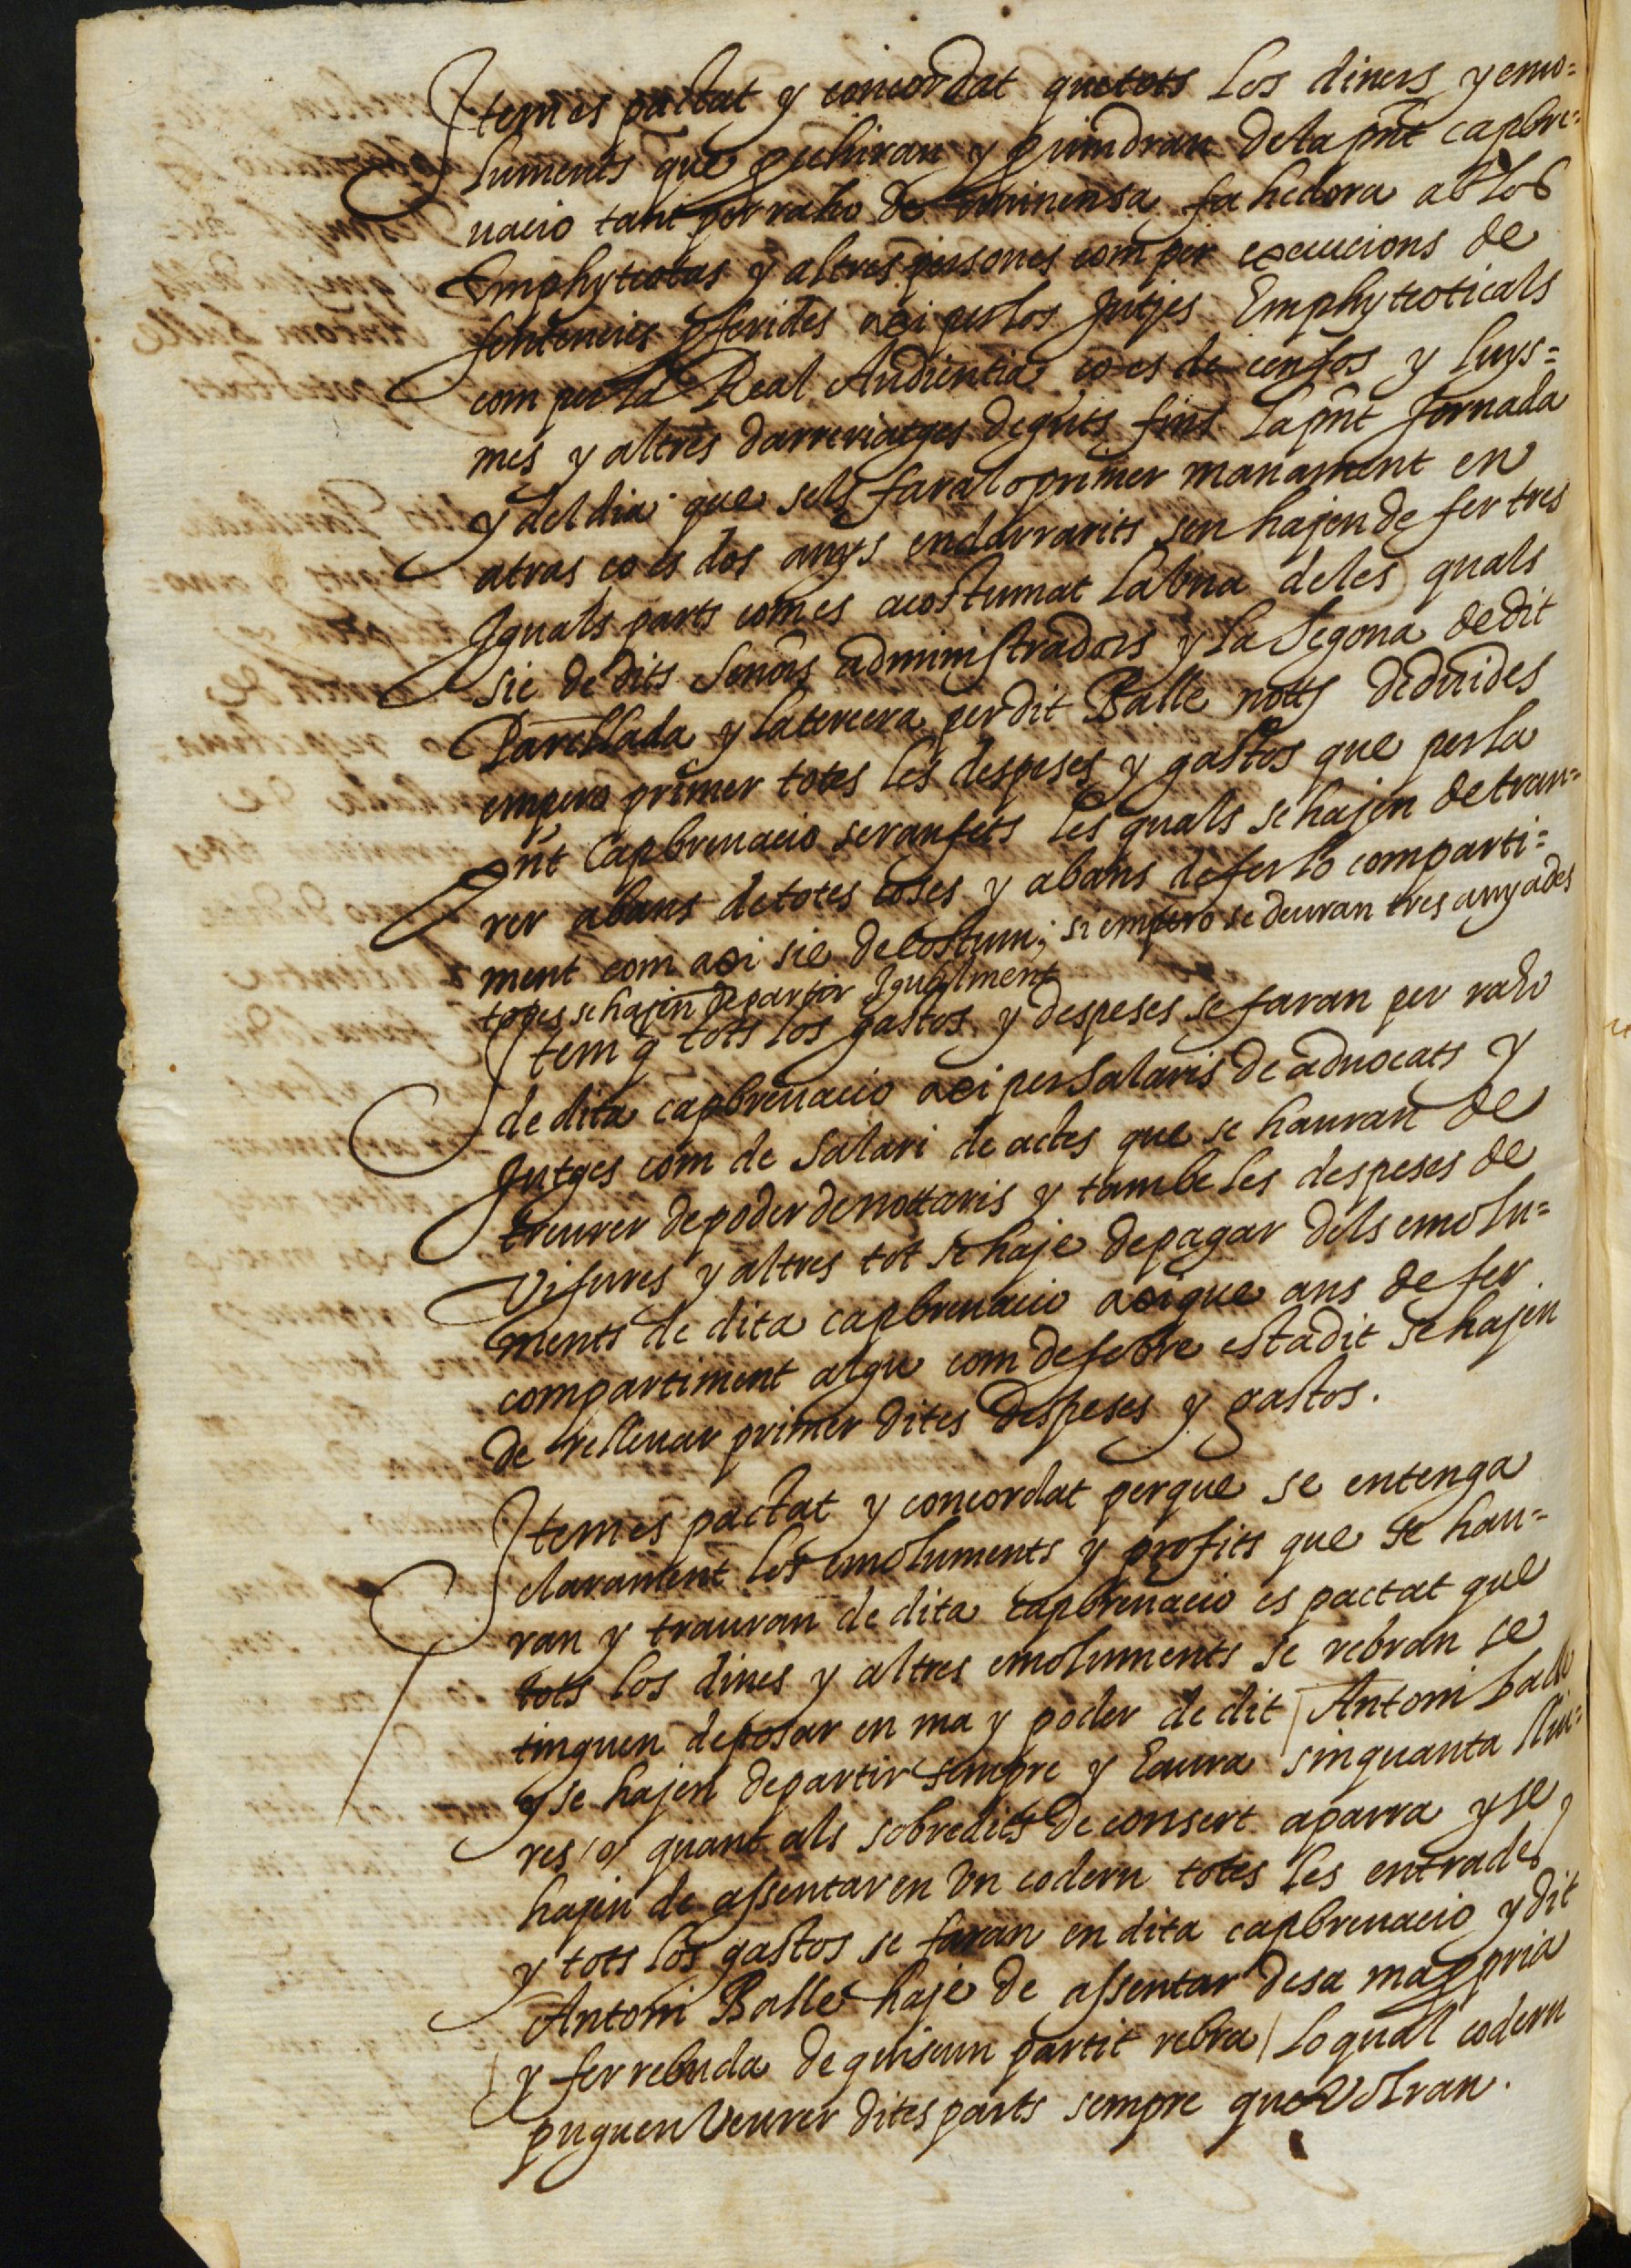 Item es pactat y concordat que tots los diners y emo=
luments que pehiran y pvindran de la pnt capbre=
uacio tant per raho de auinensa fahedora ab los
Emphyteotas y altres persones com per execucions de
sentencies pferides axi per los Jutjes Emphyteoticals
com per la Real Audientia ço es de censos y luys=
mes y altres darreriatges deguts fins la pnt Jornada
y del dia que sels fara lo primer manament en
atras ço es dos anys endarrarits sen hajen de fer tres
Iguals parts com es acostumat la vna de les quals
sie de dits senors administradors y la segona de dit
Parellada y la tercera per dit Balle notts deduides
empero primer totes les despeses y gastos que per la
pnt Capbreuacio seran fets les quals se hajen de trau=
rer abans de totes coses y abans de fer lo comparti=
ment com axi sie de costum; si empero se deuran tres anyades
totes se hajen de partir Igualment
Item q tots los gastos y despeses se faran per raho
de dita capbreuacio axi per salaris de aduocats y
Jutges com de salari de actes que se hauran de
treurer de poder de nottaris y tambe les despeses de
visures y altres tot se haje de pagar dels emolu=
ments de dita capbreuacio axi que ans de fer
compartiment algu com desobre esta dit se hajen
de rellevar primer dites despeses y gastos.
Item es pactat y concordat perque se entenga
clarament los emoluments y profits que se hau=
ran y trauran de dita capbreuacio es pactat que
tots los dines y altres emoluments se rebran se
tinguen de posar en ma y poder de dit Antoni balle
y se hajen de partir sempre y haura sinquanta lliu=
res /o/ quant als sobredits de consert aparra y se
hajen de assentar en vn codern totes les entrades
y tots los gastos se faran en dita capbreuacio y dit
Antoni Balle haje de assentar de sa ma ppria
y fer rebuda de quiscun partit rebra lo qual codern
puguen veurer dites parts sempre que volran.